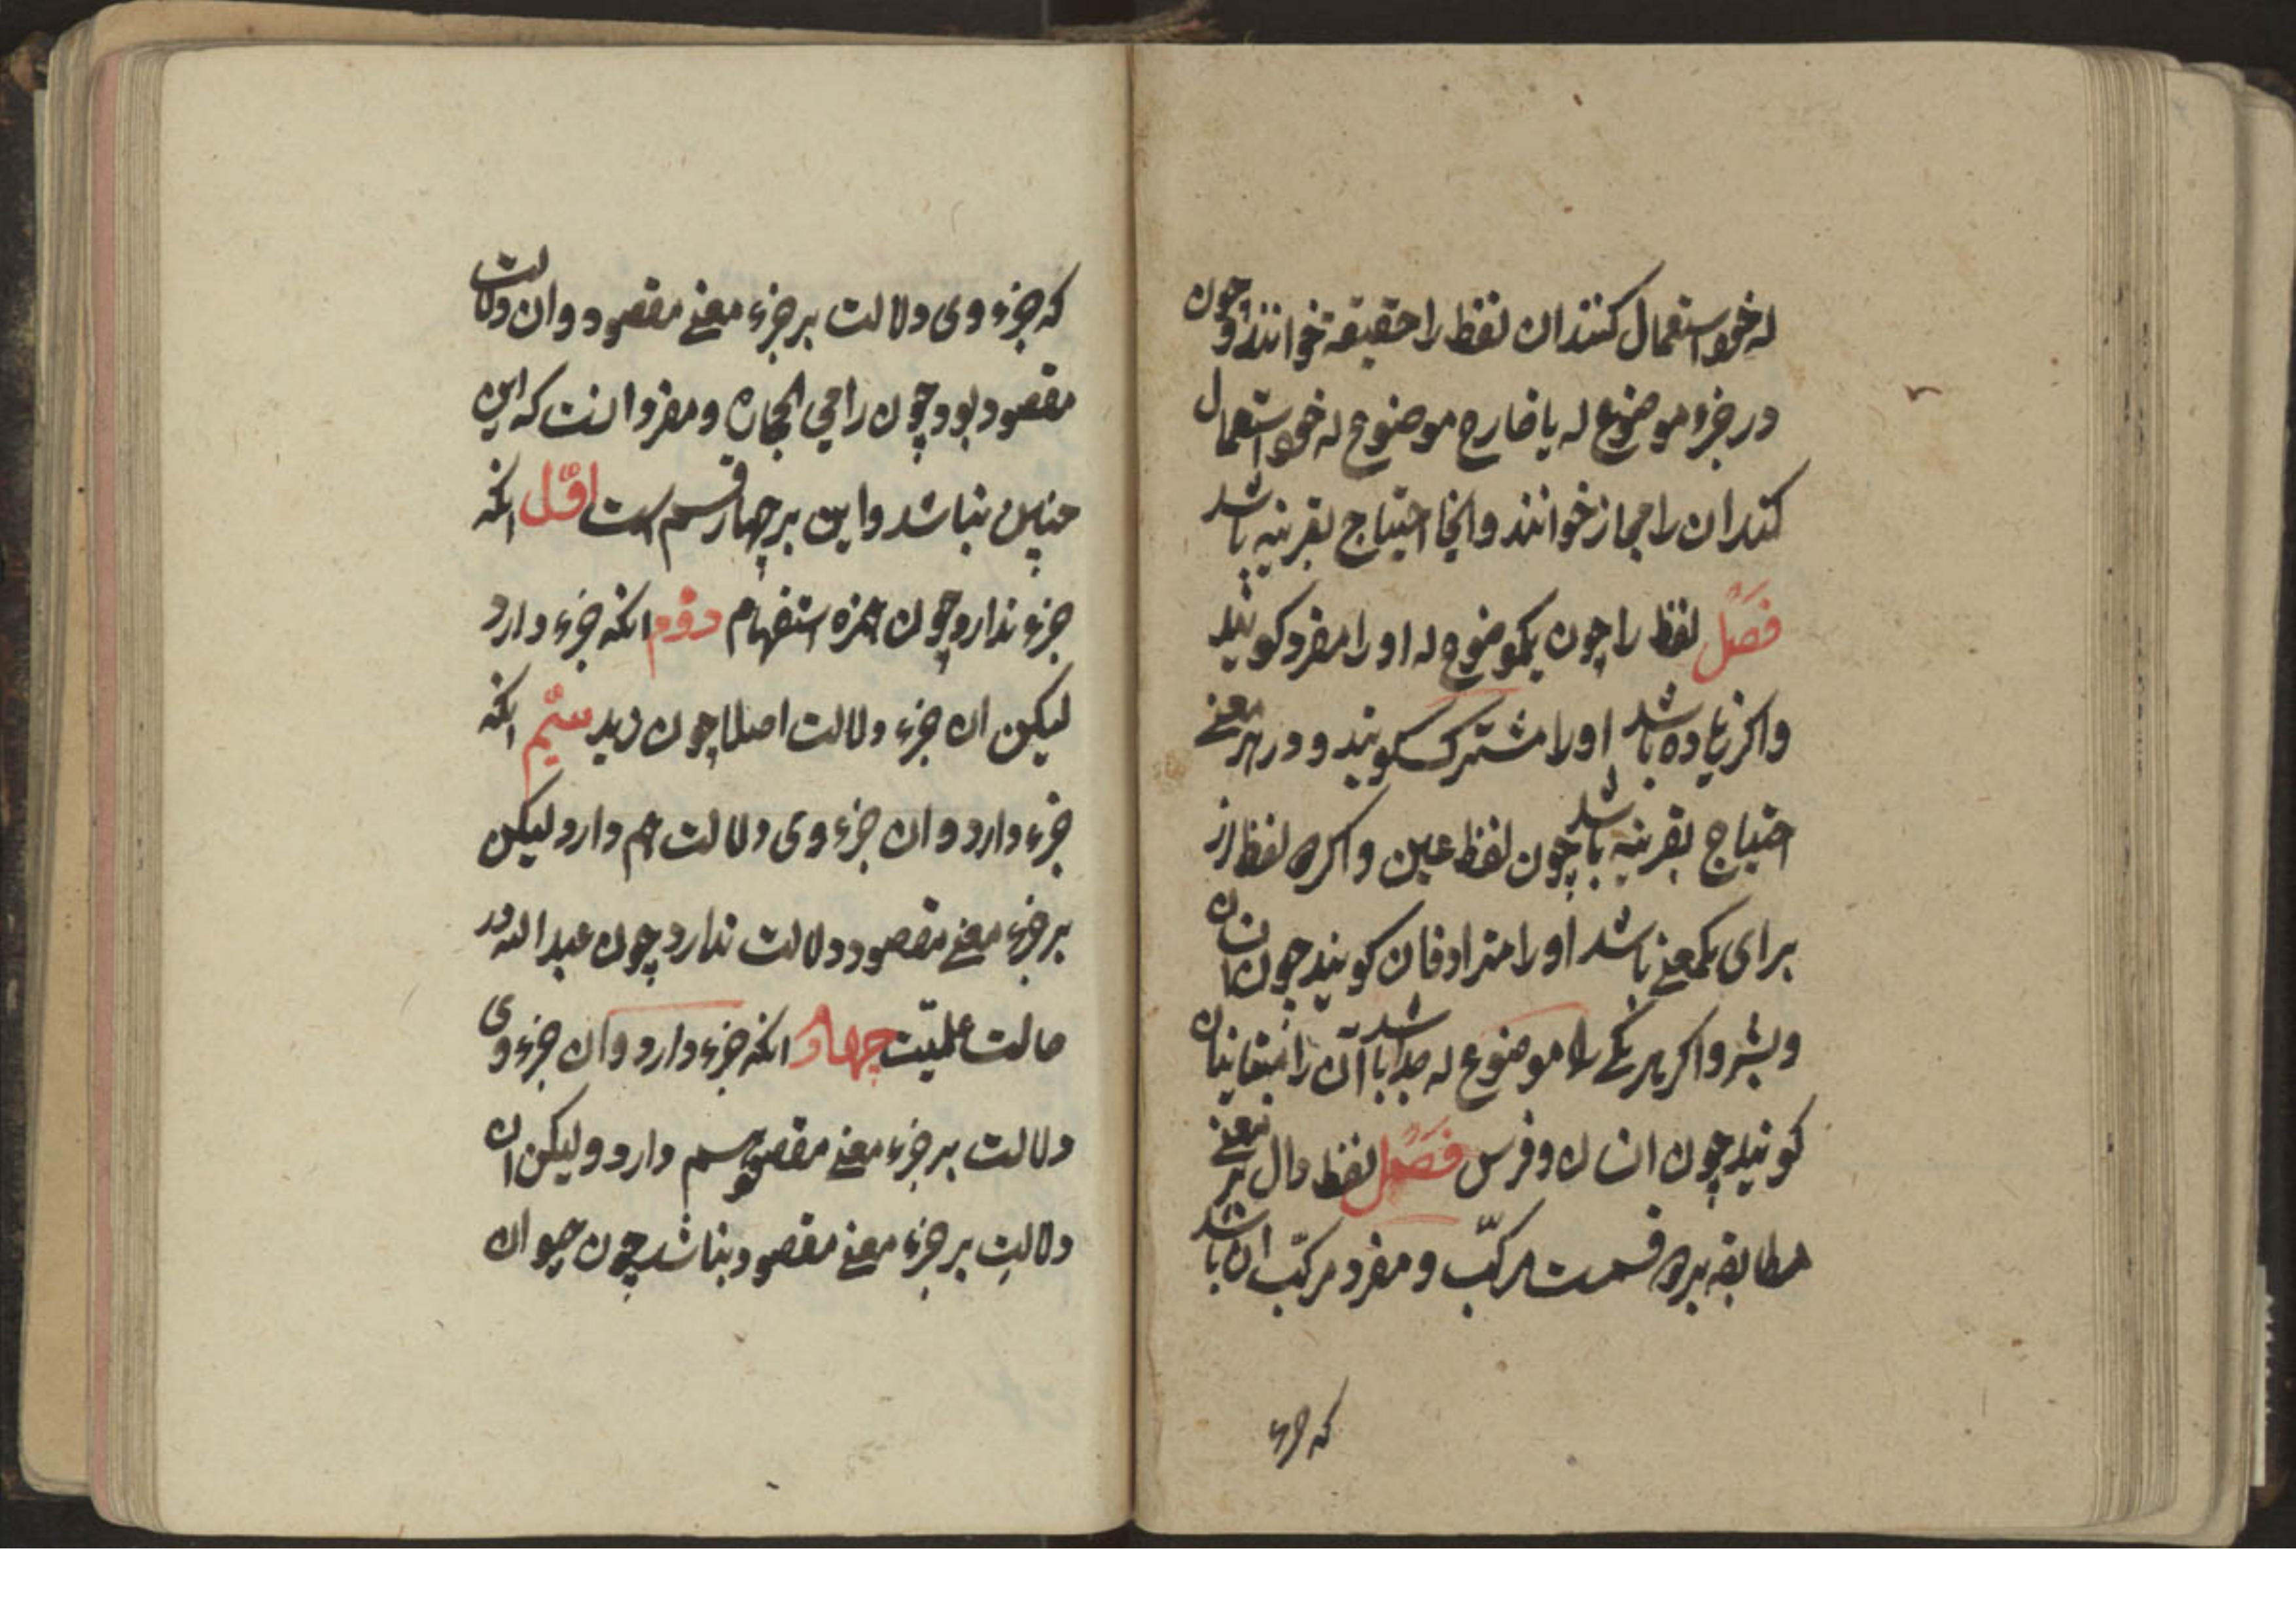 له خود استعمال کنند ان لفظ را حقیقة خوانند و چون
در جزء موضوع له یا خارج موضوع له خود استعمال
کنند ان را مجاز خوانند و اینجا احتیاج بقرینه باشد
فصل لفظ را چون یکموضوع له او را مفرد کویند
واکر زیاده باشد او را مشترک کویند و در هر معنے
احتیاج بقرینه باشد چون لفظ عین واکر ده لفظ از
برای یکمعنے باشد او را مترادفان کویند چون انسان
وبشر واکر هر یکے را موضوع له جدا باشد آن را متباینان
کویند چون انسان و فرس فصل لفظ دال بر معنے
مطابقه بر دو قسمت مرکّب و مفرد مرکّب ان باشد
که جزء
که جزء وی دلالت بر جزء معنے مقصود و ان دلالت
مقصود بود چون رامی الحجاره و مفرد انست که این
چنین نباشد واین بر چهار قسم است اوّل انکه
جزء ندارد چون همزه استفهام دوّم انکه جزء دارد
لیکن ان جزء دلالت اصلا چون زید سیّم انکه
جزء دارد و ان جزء وی دلالت هم دارد لیکن
بر جزء معنے مقصود دلالت ندارد چون عبد الله در
حالت علمیّت چهارم انکه جزء دارد وان جزء وی
دلالت بر جزء معنے مقصود هم دارد ولیکن ان
دلالت بر جزء معنے مقصود نباشد چون حیوان